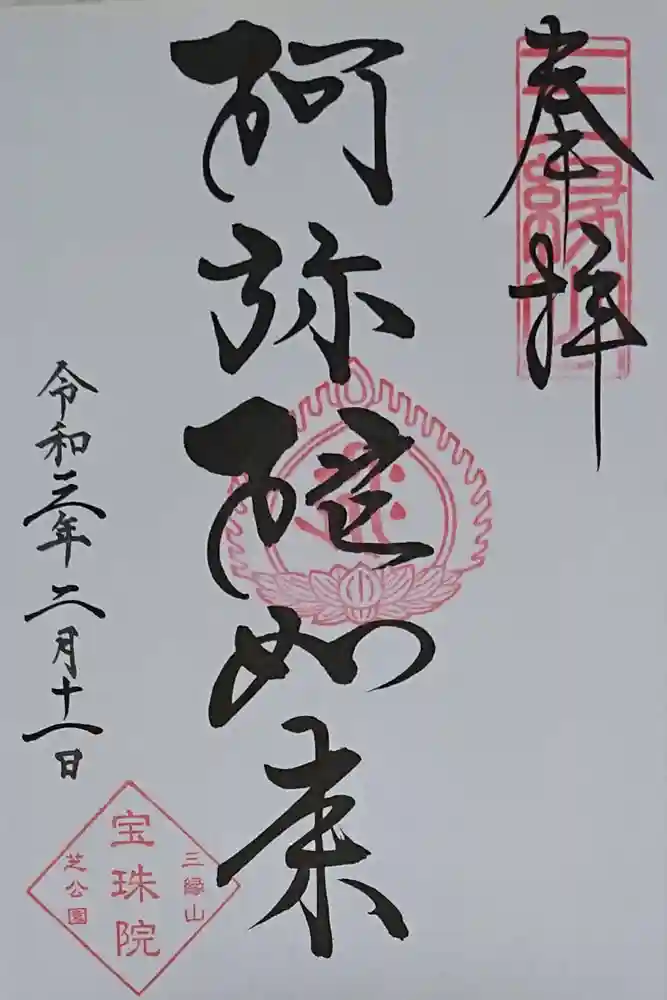 奉拝
三縁山
阿弥陀如来
令和三年二月十一日
三縁山
宝珠院
芝公園